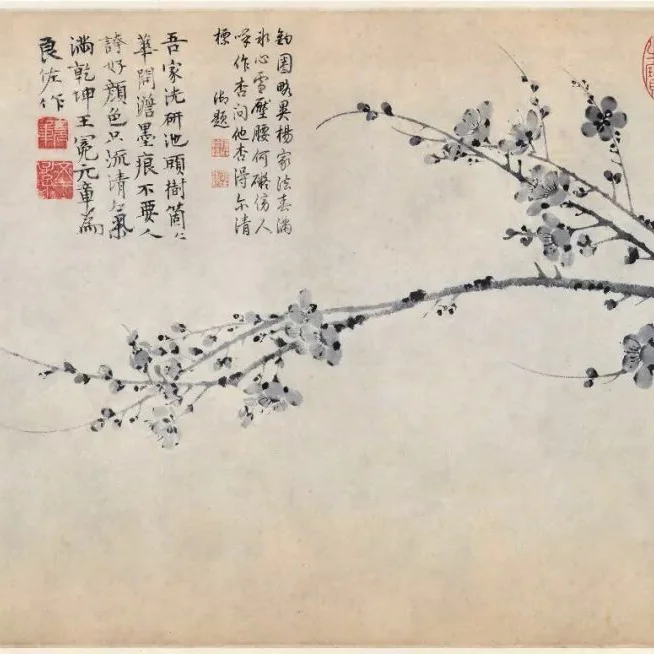 鈎圈略異楊家法春滿
氷心雪壓腰何礙傍人
喚作杏問他杏得尔清
標
御題
吾家洗研池頭樹箇〻
華開澹墨痕不要人
誇好顏色只流清氣
滿乾坤王冕元章為
良佐作